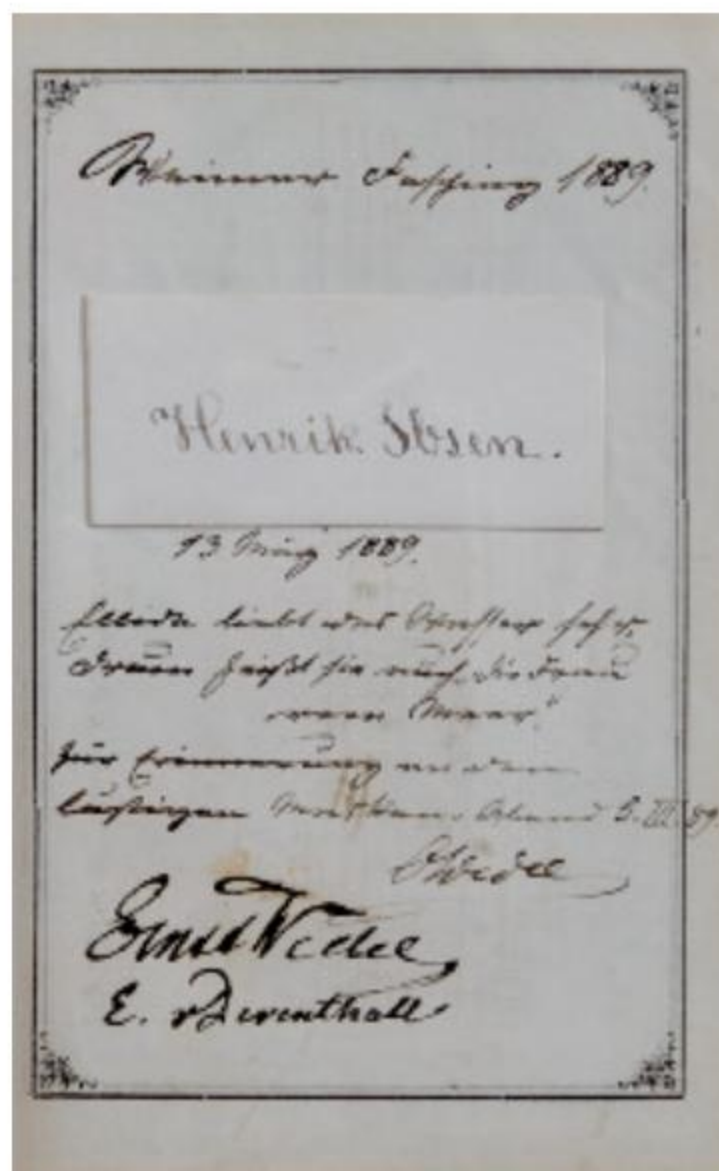 Weimar Fasching 1889.
Henrik Ibsen.
13 März 1889.
Ellida liebt das Wasser sehr,
Drum heißt sie auch „die Frau
vom Meer“
Zur Erinnerung an den
lustigen Masken-Abend 5. III. 89.
Wedel
Ernst Wedel
E. v